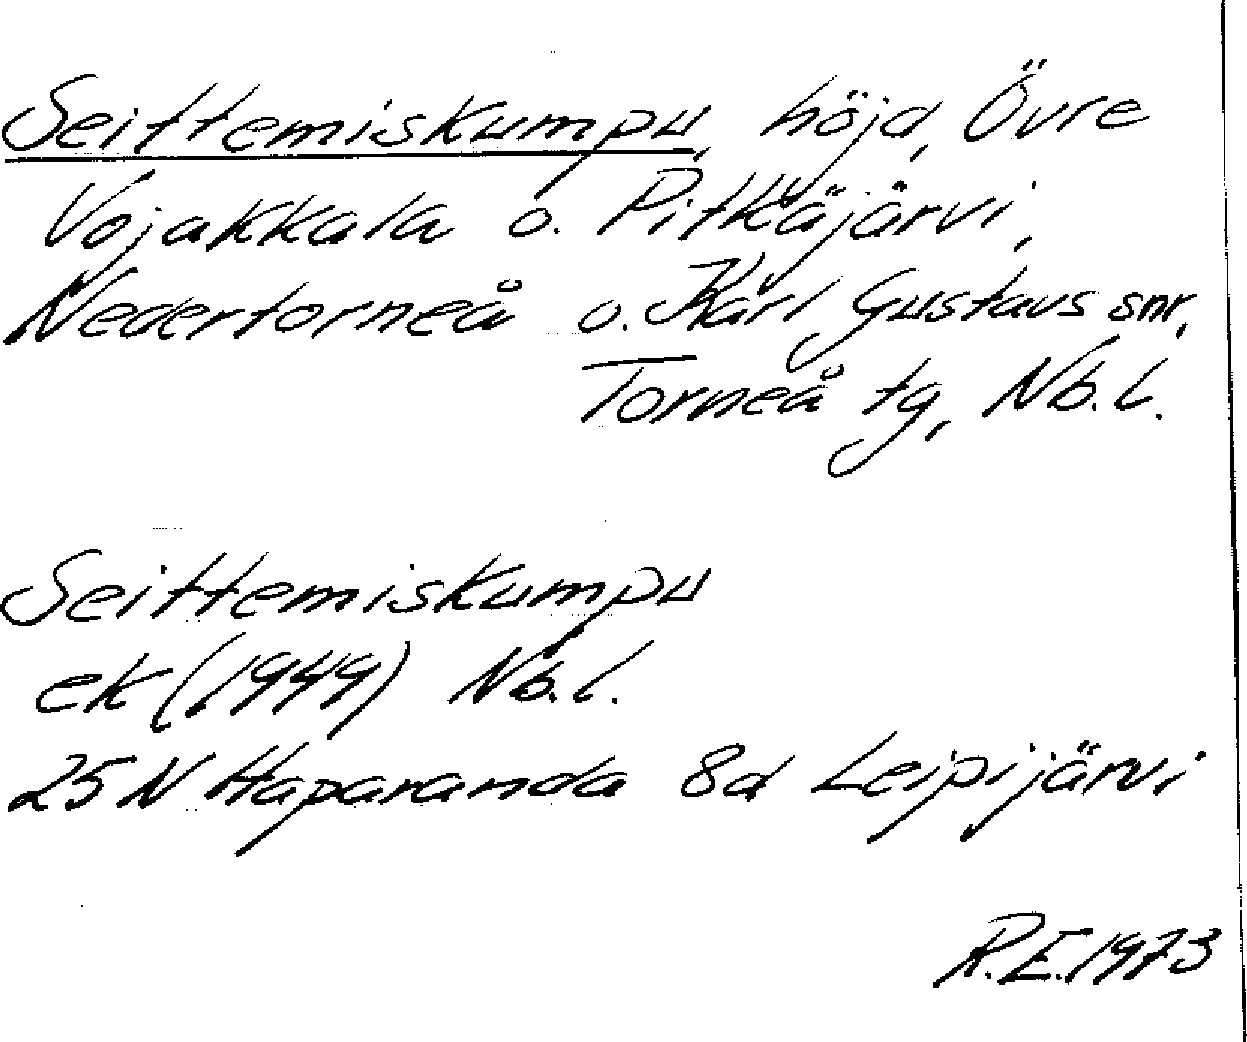 Seittemiskumpu, höjd, Övre
Vojakkala o. Pitkäjärvi,
Nedertorneå o. Karl Gustavs snr,
Torneå tg, Nb. l.
Seittemiskumpu
ek (1949) Nb. l.
25 N Haparanda 8d Leipijärvi
R.E. 1973